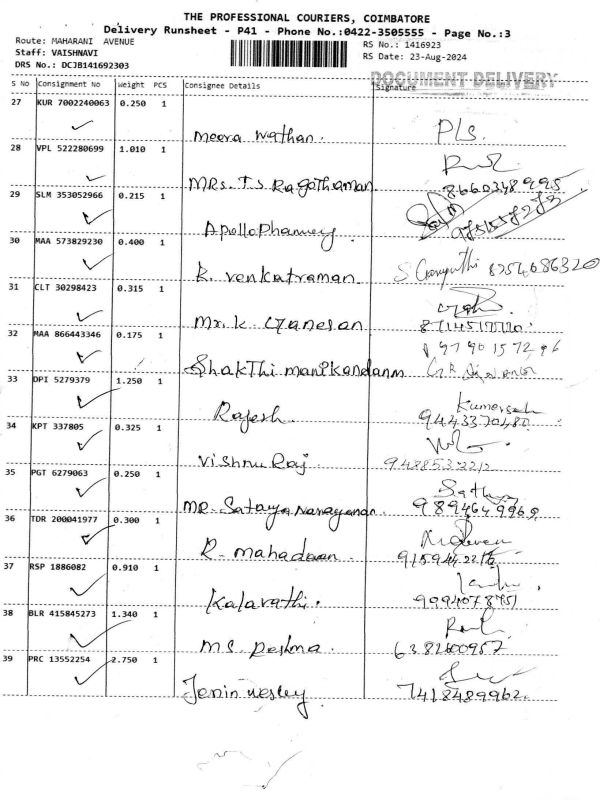 THE PROFESSIONAL COURIERS, COIMBATORE
Delivery Runsheet - P41 - Phone No.:0422-3505555 - Page No.:3
Route: MAHARANI AVENUE
Staff: VAISHNAVI
DRS No.: DCJB141692303
RS No.: 1416923
RS Date: 23-Aug-2024
DOCUMENT DELIVERY
S No Consignment No Weight PCS Consignee Details Signature
27 KUR 7002240063 0.250 1
Meera Nathan. Pls.
28 VPL 522280699 1.010 1
MRs. T.S Ragothaman 8660348995
29 SLM 353052966 0.215 1
Apollo Phamey.
30 MAA 573829230 0.400 1
R. venkatraman 8254686320
31 CLT 30298423 0.315 1
Mr. k. Ganesan
32 MAA 866443346 0.175 1
Shakthi manikandanm
33 DPI 5279379 1.250 1
Rajesh. 9443370480
34 KPT 337805 0.325 1
Vishnu Raj
35 PGT 6279063 0.250 1
MR. Sataya Narayanan 9894649969
36 TDR 200041977 0.300 1
R. mahadaan
37 RSP 1886082 0.910 1
Kalavathi.
38 BLR 415845273 1.340 1
MS Reshma 6382400957
39 PRC 13552254 2.750 1
Jenin Wesley 7418489962